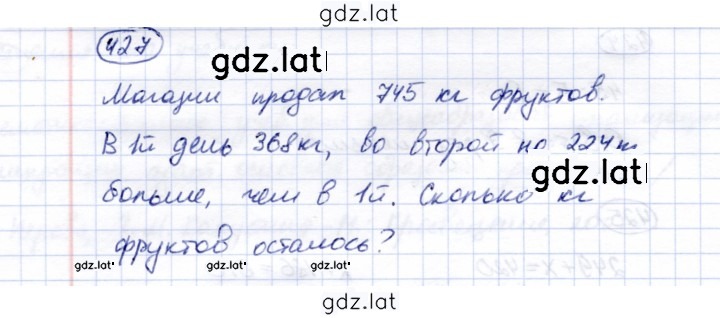 gdz.lat
427
gdz.lat
Магазин продал 745 кг фруктов.
В 1й день 368кг, во второй на 224
gdz.lat
больше, чем в 1й. Сколько кг
фруктов осталось?
gdz.lat gdz.lat gdz.lat
249+x=420
gdz.lat